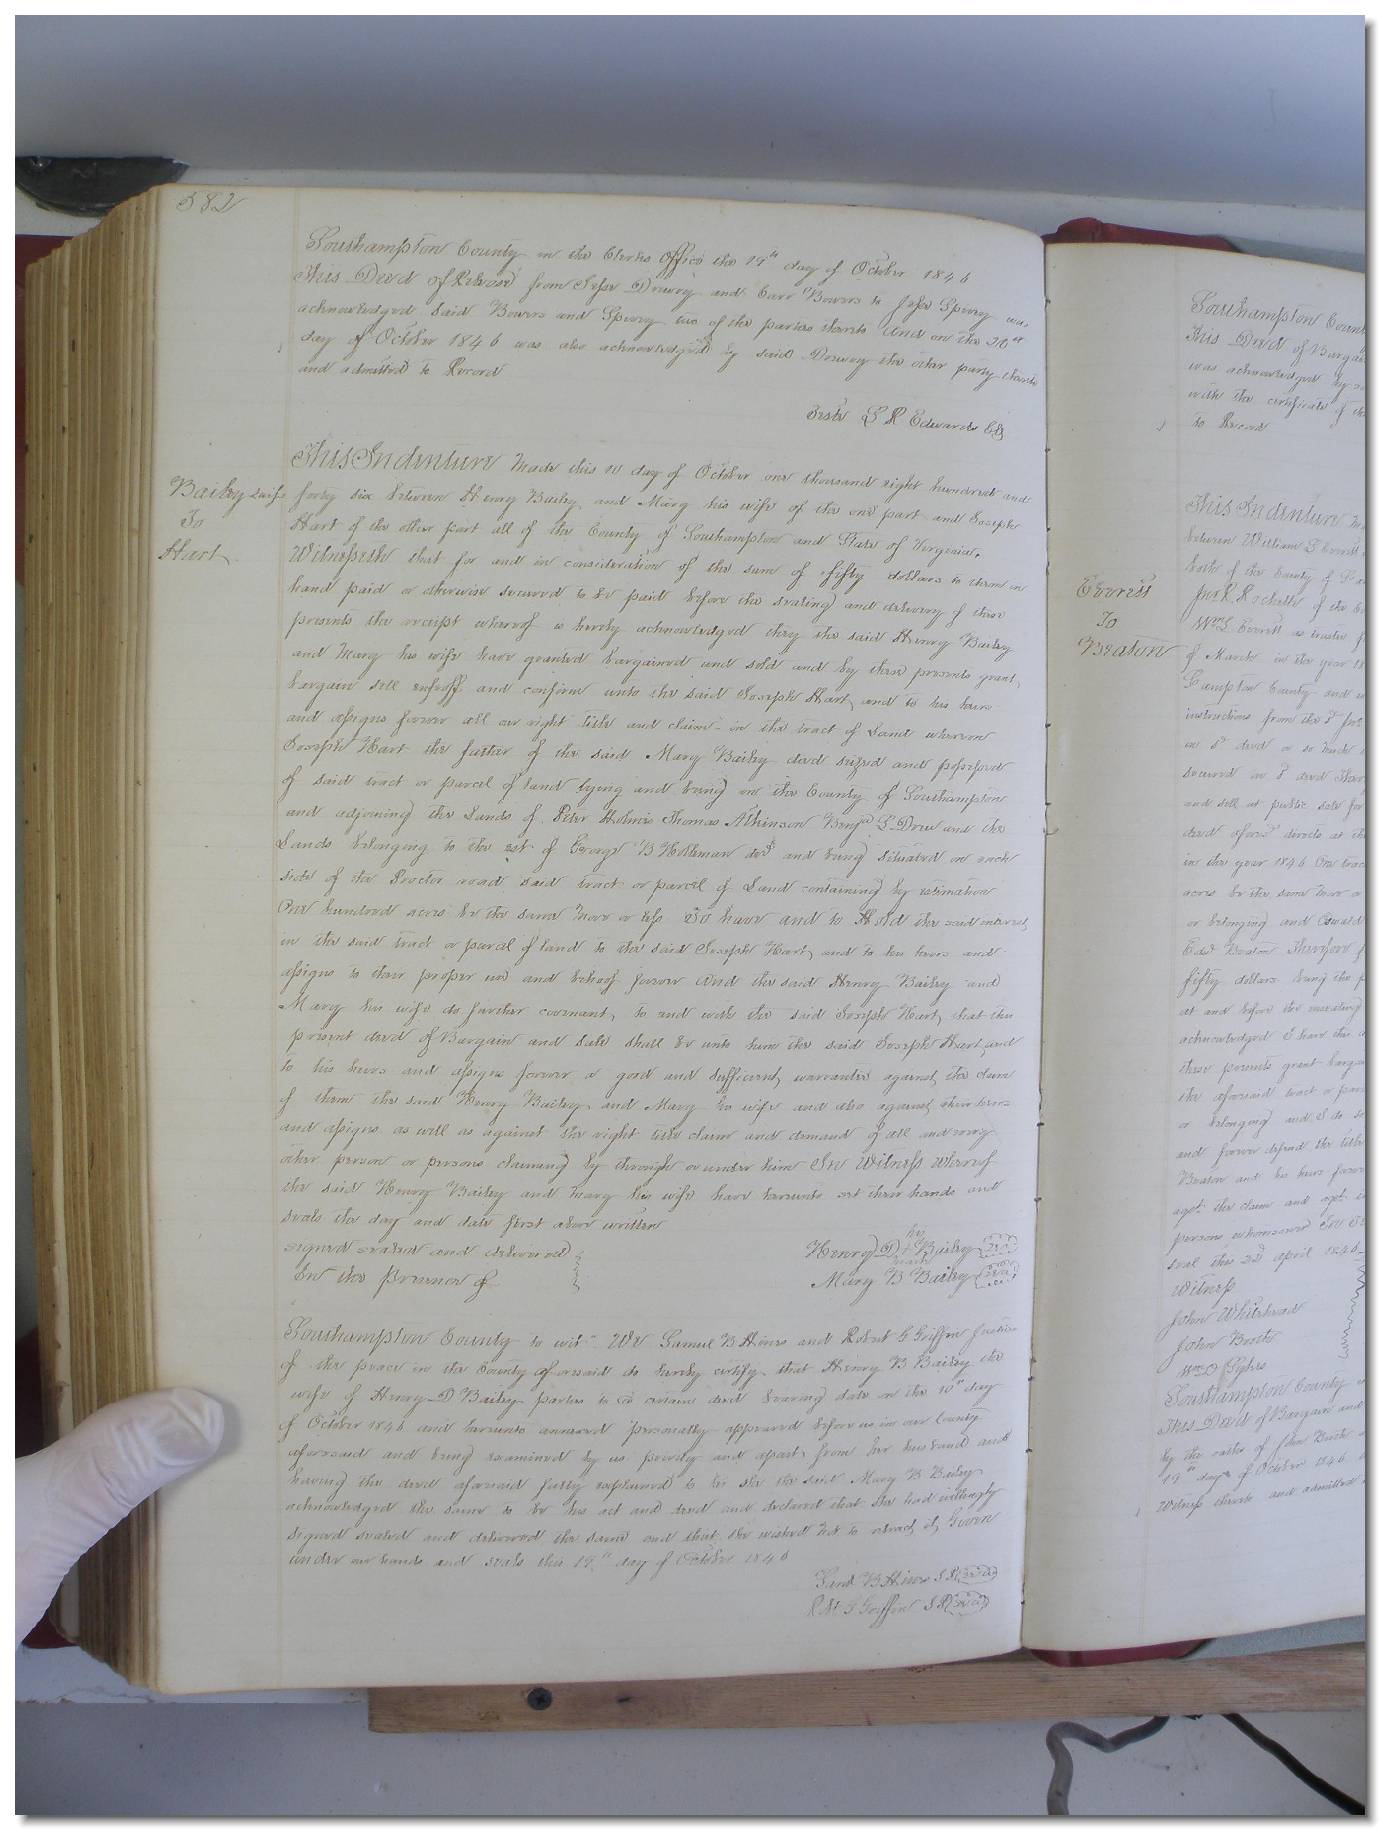 582
Southampton County in the Clerks Office the 19th day of October 1846
This Deed of Release from Jesse Drewry and Carr Bowers to Jesse Spivey was
acknowledged said Bowers and Spivey two of the parties thereto And on the 20th
day of October 1846 was also acknowledged by said Drewry the other party thereto
and admitted to Record
Teste L R Edwards Clk
Bailey & wife
To
Hart
This Indenture Made this 10 day of October one thousand eight hundred and
forty six between Henry Bailey and Mary his wife of the one part and Joseph
Hart of the other part all of the County of Southampton and State of Virginia.
Witnesseth that for and in consideration of the sum of fifty dollars to them in
hand paid or otherwise secured to be paid before the sealing and delivery of these
presents the receipt whereof is hereby acknowledged they the said Henry Bailey
and Mary his wife have granted bargained and sold and by these presents grant
bargain sell enfeoff and confirm unto the said Joseph Hart and to his heirs
and assigns forever all our right title and claim in the tract of Land whereon
Joseph Hart the father of the said Mary Bailey died seized and possessed
of said tract or parcel of land lying and being in the County of Southampton
and adjoining the Lands of Peter Holmes Thomas Atkinson Benjn G Drew and the
Lands belonging to the est of George B Holleman decd and being situated on each
side of the Proctor road said tract or parcel of Land containing by estimation
One hundred acres be the same more or less To have and to Hold the said interest
in the said tract or parcel of land to the said Joseph Hart and to his heirs and
assigns to their proper use and behoof forever And the said Henry Bailey and
Mary his wife do further covenant to and with the said Joseph Hart that this
present deed of Bargain and sale shall be unto him the said Joseph Hart and
to his heirs and assigns forever a good and sufficient warrantee against the claim
of them the said Henry Bailey and Mary his wife and also against their heirs
and assigns as well as against the right title claim and demand of all and every
other person or persons claiming by through or under him In Witness whereof
the said Henry Bailey and Mary his wife have hereunto set their hands and
seals the day and date first above written
signed sealed and delivered
In the presence of
Henry D + Bailey seal
his
mark
Mary B Bailey seal
Southampton County to wit We Samuel B Hines and Robert G Griffin Justices
of the peace in the County aforesaid do hereby certify that Henry B Bailey the
wife of Henry D Bailey parties to a certain deed bearing date on the 10th day
of October 1846 and hereunto annexed personally appeared before us in our County
aforesaid and being examined by us privily and apart from her husband and
having the deed aforesaid fully explained to her she the said Mary B Bailey
acknowledged the same to be his act and deed and declared that she had willingly
signed sealed and delivered the same and that she wished not to retract it Given
under our hands and seals this 19th day of October 1846
Saml B Hines J P seal
R G Griffin J P seal
Southampton Count
This Deed of Bargai
was acknowledged by
with the certificate of
to Record
Everitt
To
Beaton
This Indenture
between William L Everitt
both of the County of
Jas R Rochelle of the
Wm L Everitt as trustee
of March in the year 18
Hampton County and
instructions from the
in sd deed or so much
secured in sd deed
and sell at public sale for
deed aforesd directs at
in the year 1846 One trac
acres be the same more or
or belonging and Oswald
Edwd Beaton Therefore
fifty dollars being the
at and before the
acknowledged I have
these presents grant barga
the aforesaid tract or par
or belonging and I do
and forever defend the title
Beaton and his heirs forev
agst the claim and agst
persons whomsoever In
seal this 22d April 1846
Witness
John Whitehead
John Booth
Wm O Sykes
Southampton County
This Deed of Bargain and
by the oaths of John
19th day of October 1846
Witness thereto and admitted